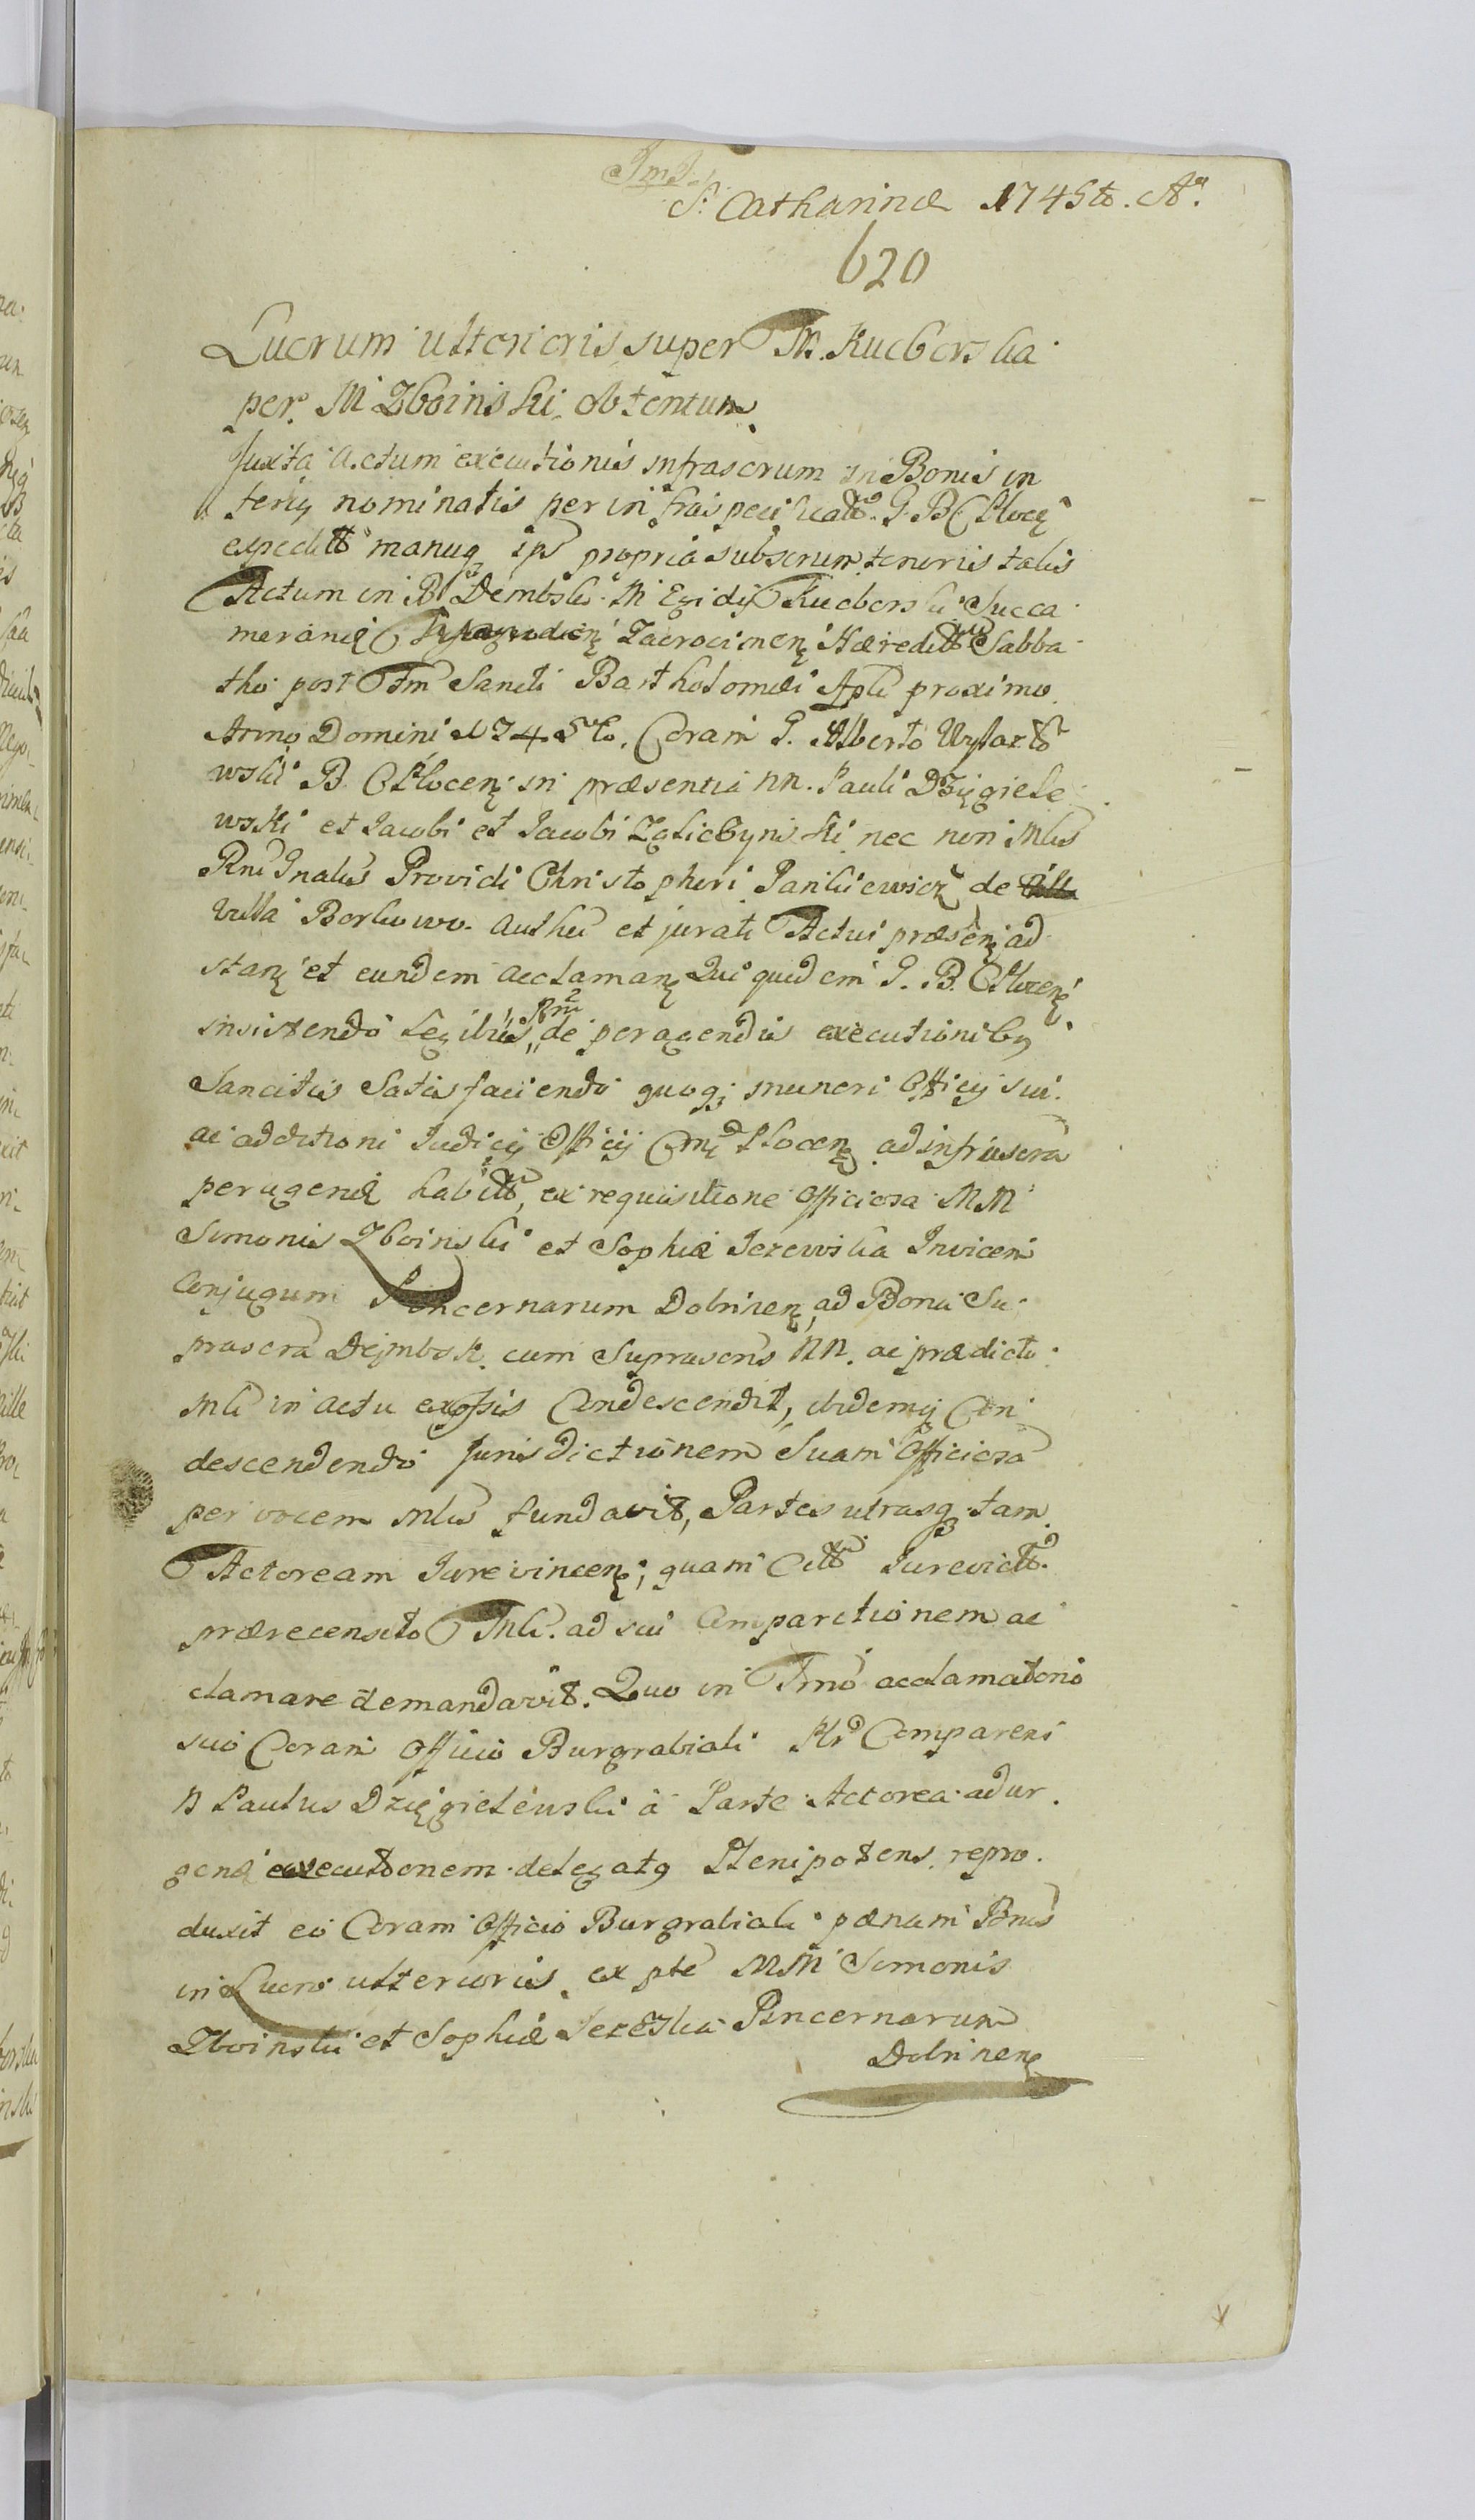 S. Catharinæ 1745to. Ao.
620
Lucrum ulterioris super M. Kucborska
per M Zboinski obtentum.
Juxta Actum executionis infrascrum in Bonis in
terius nominatis per infraspecificatt. G. B. C. Plocen
expeditt manuq ips propria subscrum tenoris talis
Actum in B. Dembsk. M Egidij Kucborski Succa
merarij Zacrocimen Hæreditt Sabba
tho post Ftm Sancti Bartholomæi Apli proximo
Anno Domini 1745to. Coram G. Alberto
wski B. C. Plocen in præsentia NN. Pauli Dzięgiele
wski et Jacobi et Jacobi nec non Mlis
Rni Gnalis Providi Christopheri de
Villa Borkowo authci et jurati Actui præsen ad
stan et eundem acclaman Qui quidem G. B. C. Plocen
insistendo Legibus Rni de peragendis executionibq
Sancitis Satisfaciendo quoq muneri Officij sui
ac additioni Judicij Officij Plocen ad infrascra
peragend habitt, ex requisitione officiosa MM
Simonis Zboinski et Sophiæ Jezewska Invicem
Conjugum Pincernarum Dobrinen, ad Bona Su
prascra Dembsk. cum Suprascris NN. ac prædicto
Mli in actu exoffis Condescendit, ibidemq Con
descendendo Jurisdictionem Suam Officiosa
per vocem Mlis fundavit, Partes utrasq tam
Actoream Jurevincen; quam Citt Jurevictt
prærecensito Mli. ad sui Comparitionem ac
clamare demandavit. Quo in Tmo acclamatorio
suo Coram Officio Burgrabiali Comparens
N Paulus Dzięgielewski a Parte Actorea ad ur
gend executionem delegatq Plenipotens repro
duxit eo Coram Officio Burgrabiali pænam Bnis
in Lucro ulterioris ex pte MM Simonis
Zboinski et Sophiæ Pincernarum
Dobrinen